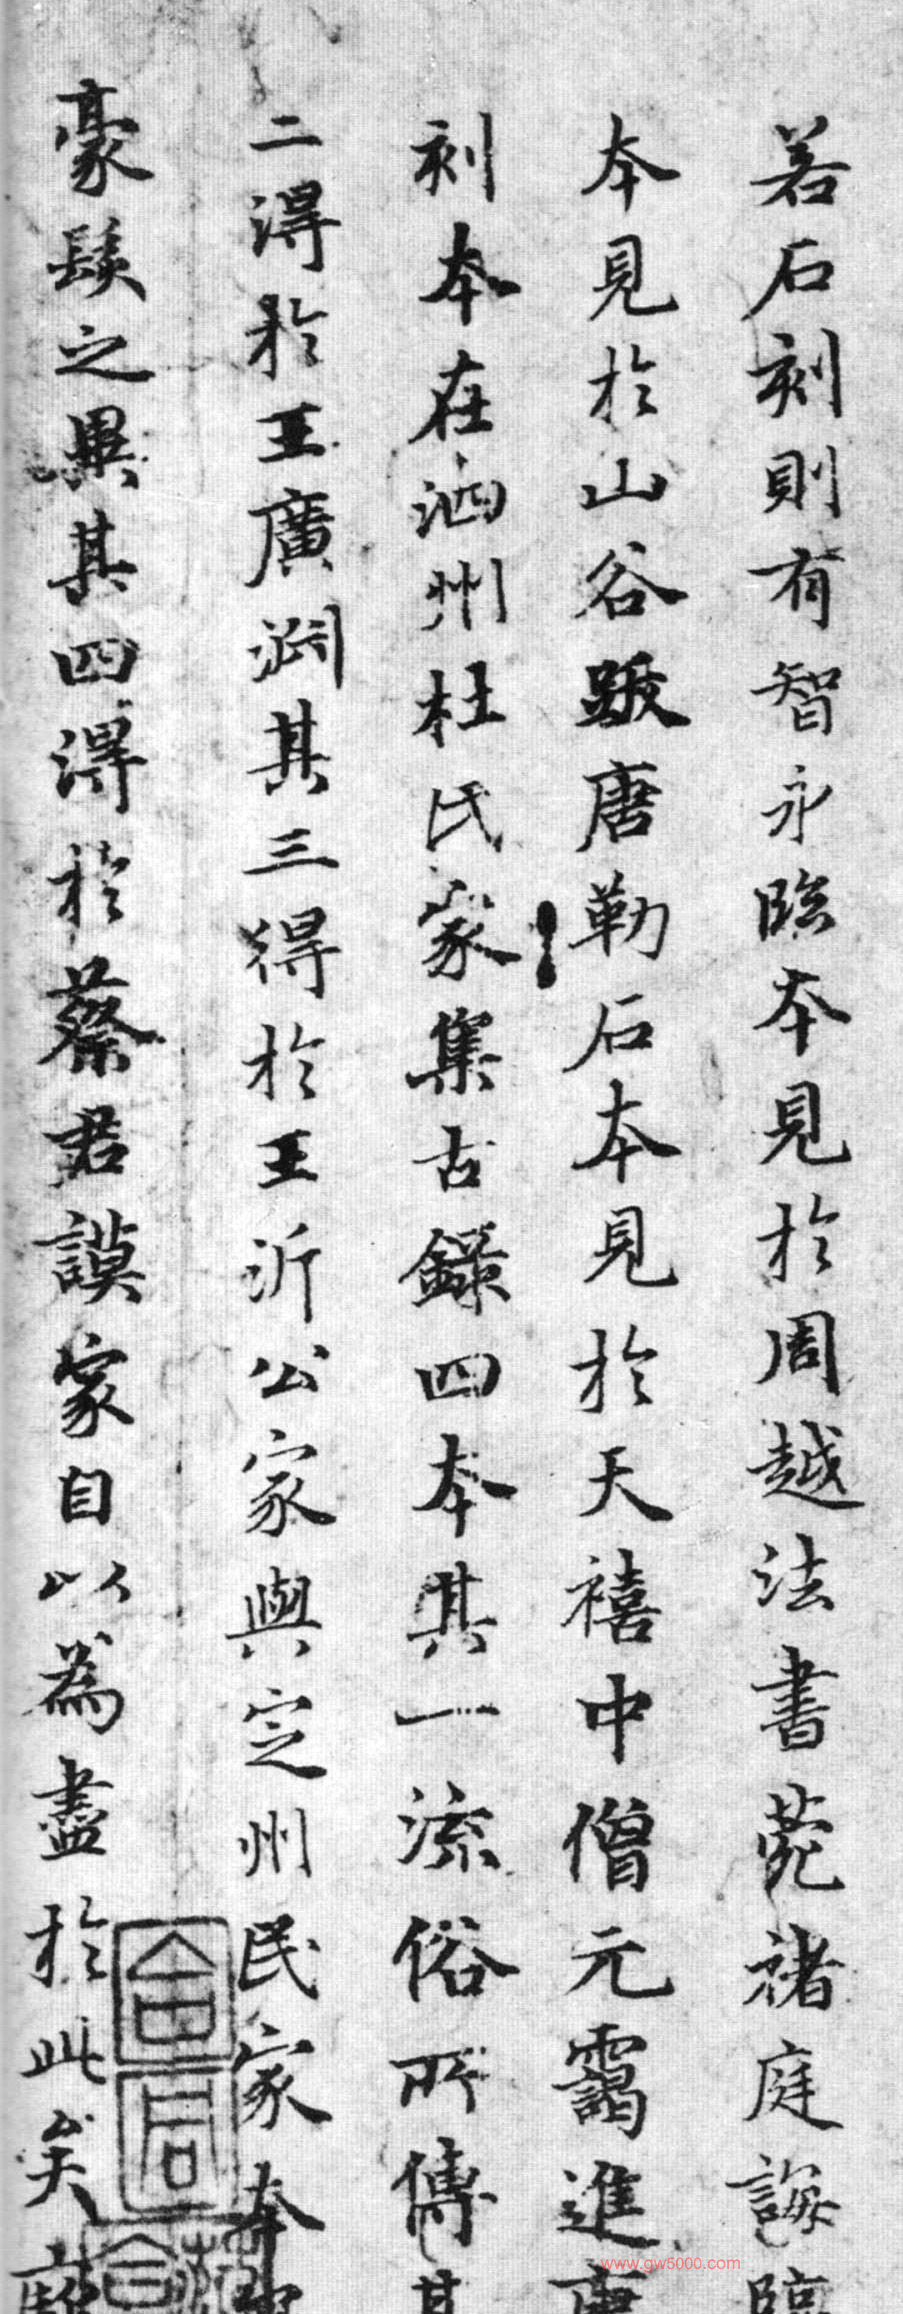 若石刻則有智永臨本見於周越法書苑褚庭誨臨
本見於山谷跋唐勒石本見於天禧中僧元靄進唐
刻本在泗州杜氏家集古錄四本其一流俗所傳其
二得於王廣淵其三得於王沂公家與定州民家本
豪髮之異其四得於蔡君謨家自以為盡於此矣
www.gw5000.com